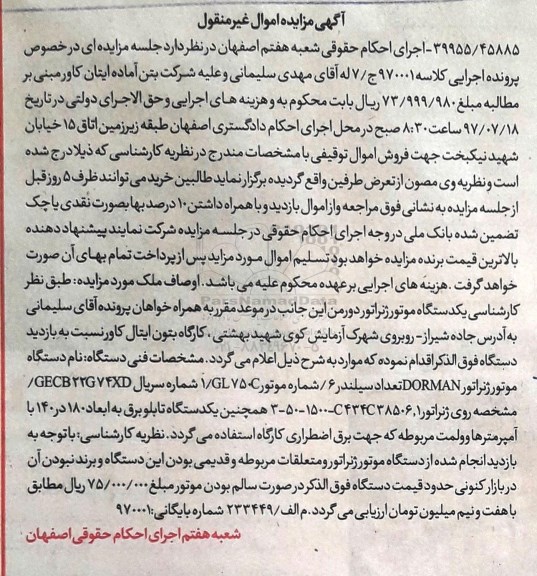 آگهی مزایده اموال غیر منقول
۳۹۹۵۵/۴۵۸۸۵-اجرای احکام حقوقی شعبه هفتم اصفهان در نظر دارد جلسه مزایده ای در خصوص
پرونده اجرایی کلاسه ۹۷۰۰۰۱ ج/۷ له آقای مهدی سلیمانی و علیه شرکت بتن آماده ایتان کاور مبنی بر
مطالبه مبلغ ۷۳/۹۹۹/۹۸۰ ریال بابت محکوم به و هزینه های اجرایی و حق الاجرای دولتی در تاریخ
۹۷/۰۷/۱۸ ساعت ۸:۳۰ صبح در محل اجرای احکام دادگستری اصفهان طبقه زیرزمین اتاق ۱۵ خیابان
شهید نیکبخت جهت فروش اموال توقیفی با مشخصات مندرج در نظریه کارشناسی که ذیلا درج شده
است و نظریه وی مصون از تعرض طرفین واقع گردیده برگزار نماید طالبین خرید می توانند ظرف ۵ روز قبل
از جلسه مزایده به نشانی فوق مراجعه و از اموال بازدید و با همراه داشتن ۱۰ درصد بها بصورت نقدی یا چک
تضمین شده بانک ملی در وجه اجرای احکام حقوقی در جلسه مزایده شرکت نمایند پیشنهاد دهنده
بالاترین قیمت برنده مزایده خواهد بود تسلیم اموال مورد مزایده پس از پرداخت تمام بهای آن صورت
خواهد گرفت . هزینه های اجرایی بر عهده محکوم علیه می باشد. اوصاف ملک مورد مزایده: طبق نظر
کارشناسی یکدستگاه موتور ژنراتور دورمن این جانب در موعد مقرر به همراه خواهان پرونده آقای سلیمانی
به آدرس جاده شیراز- روبروی شهرک آزمایش کوی شهید بهشتی ، کارگاه بتون ایتال کاور نسبت به بازدید
دستگاه فوق الذکر اقدام نموده که موارد به شرح ذیل اعلام می گردد. مشخصات فنی دستگاه: نام دستگاه
موتور ژنراتور DORMAN تعداد سیلندر ۶/ شماره موتور ۱/GL ۷۵۰C شماره سریال GECB۲۲G۷۴XD/
مشخصه روی ژنراتور ۳-۵۰-۱۵۰۰-C۴۳۴C۳۸۵۰۶,۱ همچنین یکدستگاه تابلو برق به ابعاد ۱۸۰ در ۱۴۰ با
آمپر مترها و ولمت مربوطه که جهت برق اضطراری کارگاه استفاده می گردد. نظریه کارشناسی: با توجه به
بازدید انجام شده از دستگاه موتور ژنراتور و متعلقات مربوطه و قدیمی بودن این دستگاه و برند نبودن آن
در بازار کنونی حدود قیمت دستگاه فوق الذکر در صورت سالم بودن موتور مبلغ ۷۵/۰۰۰/۰۰۰ ریال مطابق
با هفت و نیم میلیون تومان ارزیابی می گردد. م الف/ ۲۳۳۴۴۹ شماره بایگانی: ۹۷۰۰۰۱
شعبه هفتم اجرای احکام حقوقی اصفهان
ParsNamadData